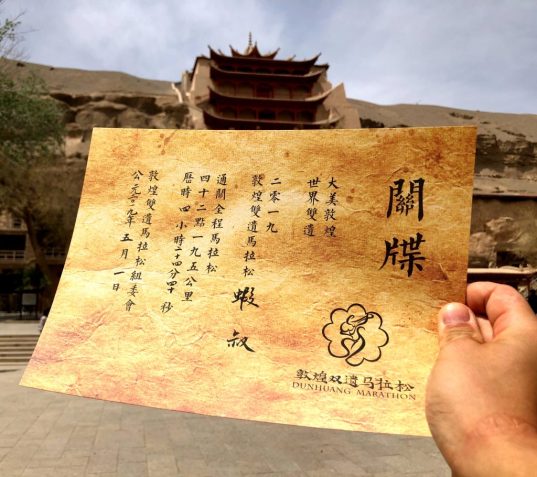 關牒
大美敦煌
世界雙遺
二零一九
敦煌雙遺馬拉松 蝦叔
通關全程馬拉松
四十二點一九五公里
曆時四小時二十四分四十秒
敦煌雙遺馬拉松組委會
公元二〇一九年五月一日
敦煌双遗马拉松
DUNHUANG MARATHON